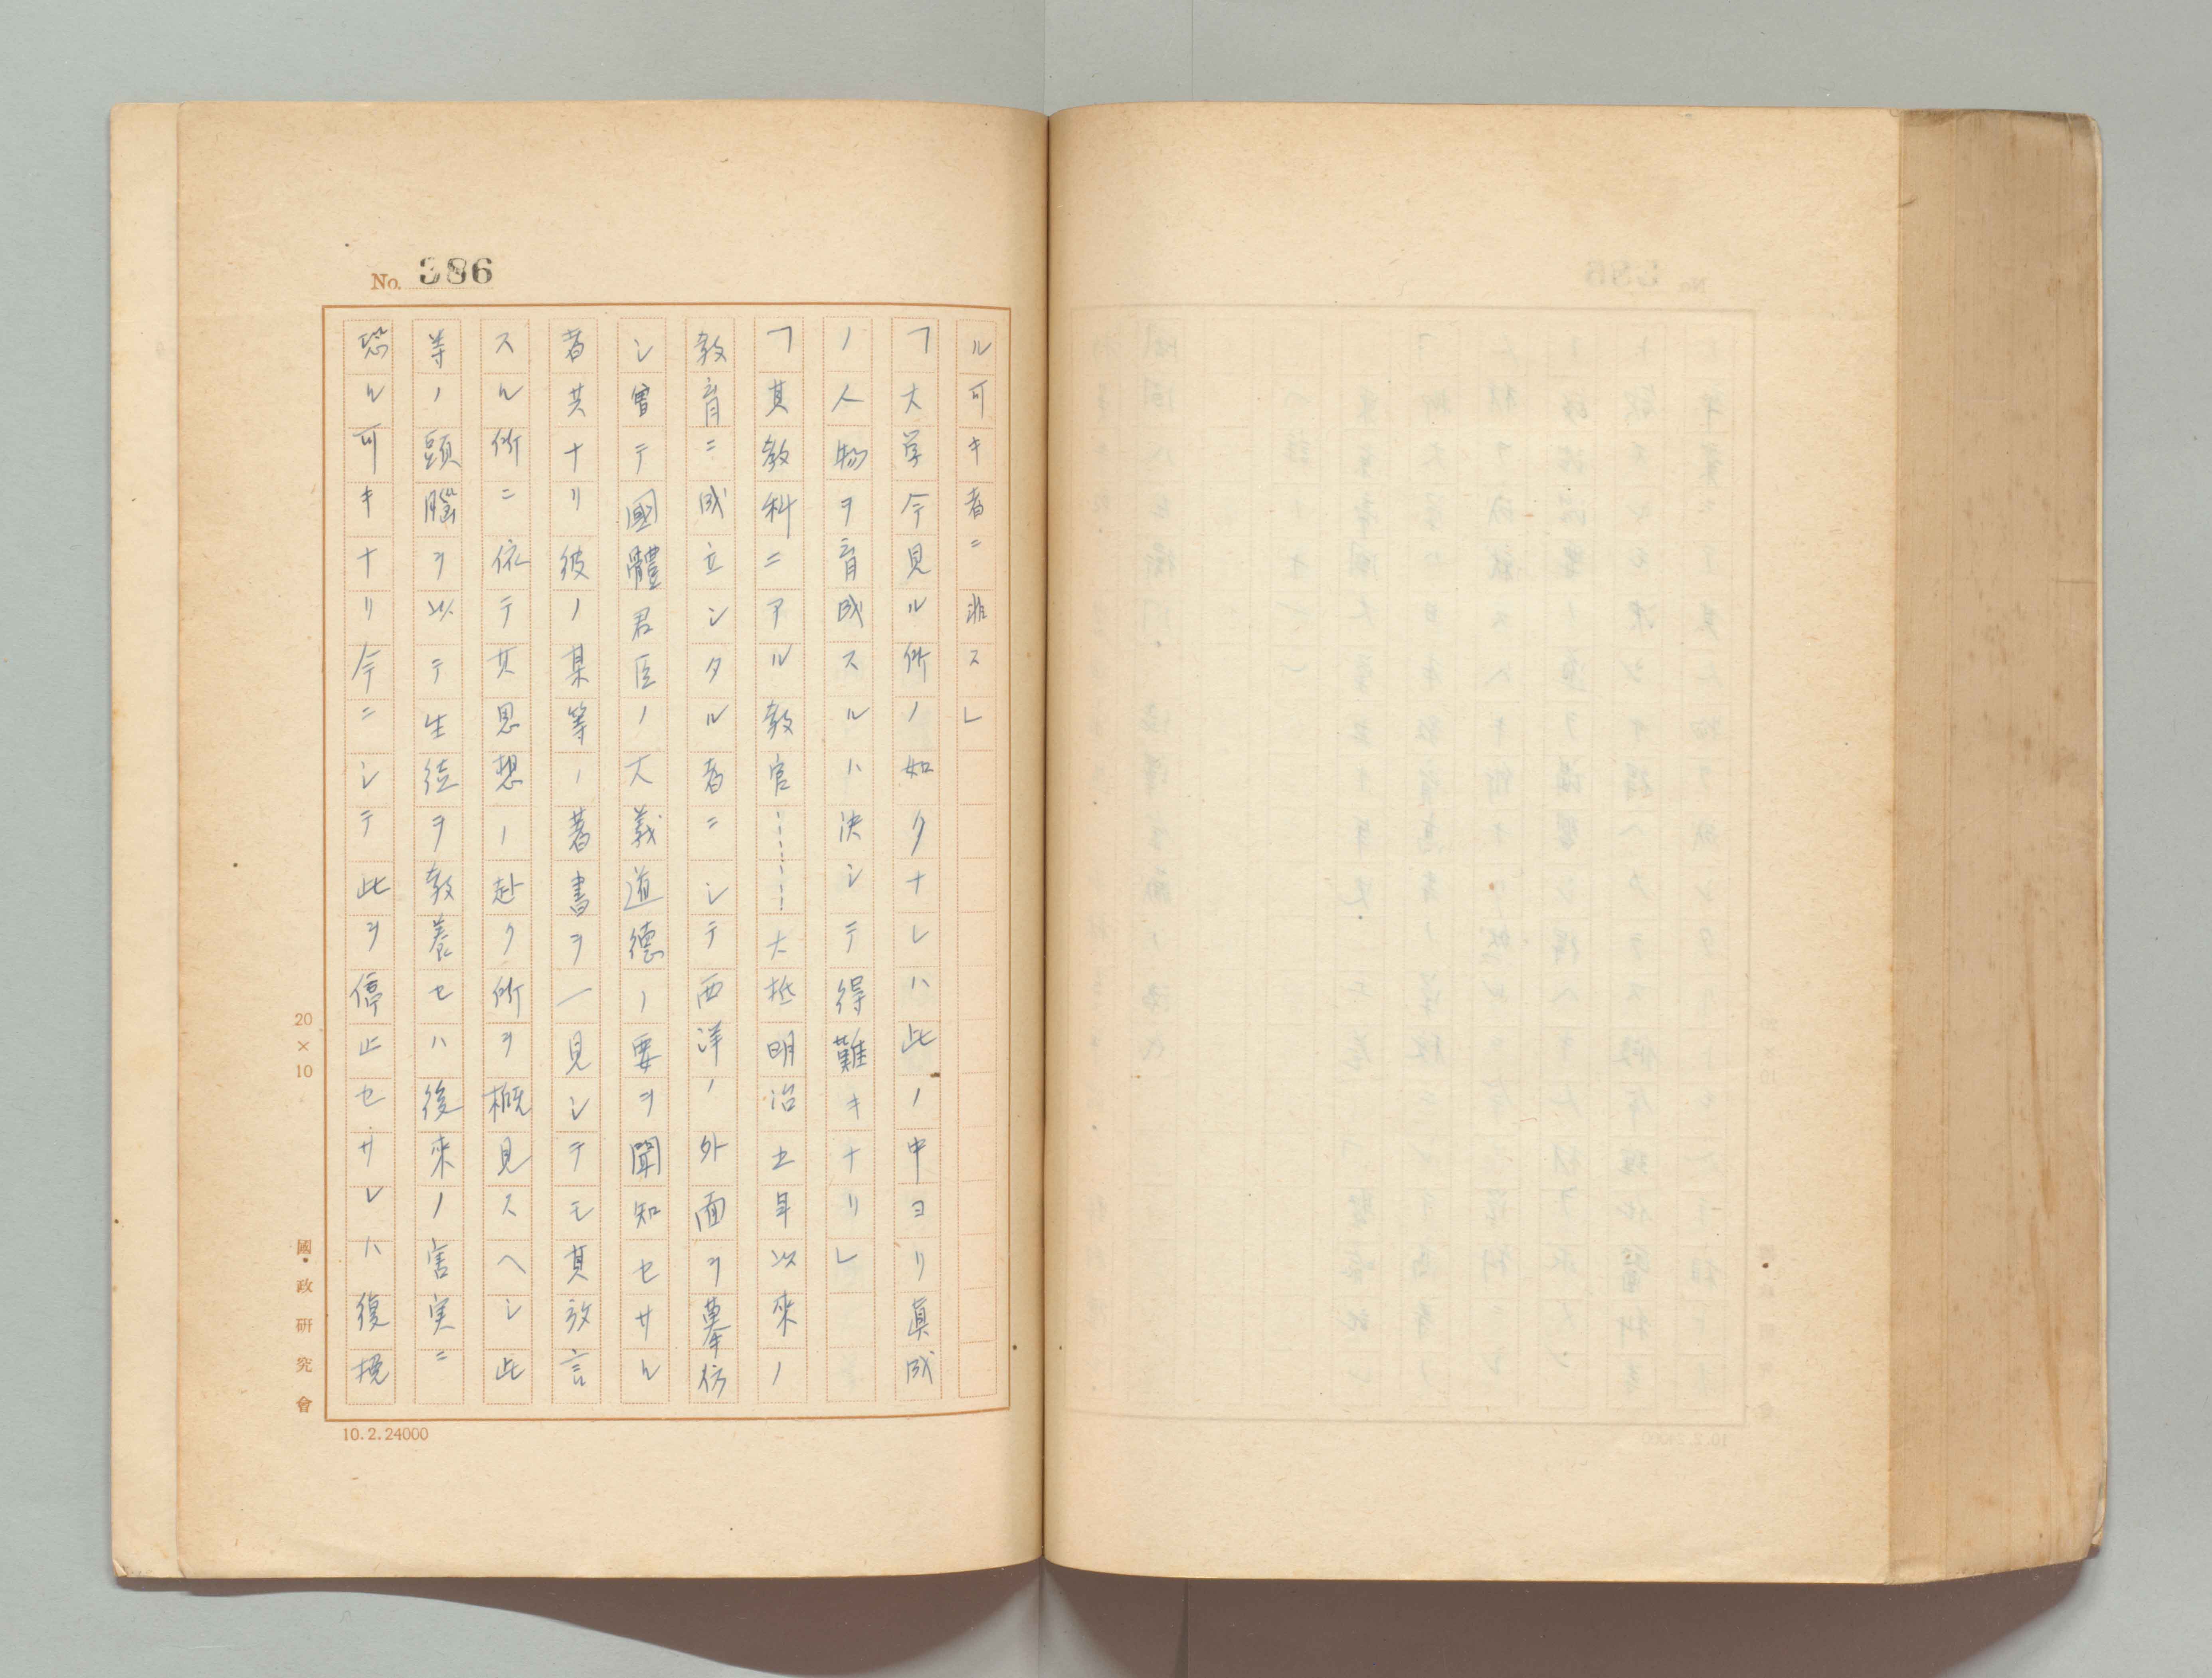 No. 386
ル可キ者ニ非ス」
「大学今見ル所ノ如クナレハ此ノ中ヨリ眞成
ノ人物ヲ育成スルハ決シテ得難キナリ」
「其教科ニアル教官………大抵明治五年以來ノ
教育ニ成立シタル者ニシテ西洋ノ外面ヲ摹仿
シ曾テ國體君臣ノ大義道德ノ要ヲ聞知セサル
者共ナリ彼ノ某等ノ著書ヲ一見シテモ其放言
スル所ニ依テ其思想ノ赴ク所ヲ概見スヘシ此
等ノ頭腦ヲ以テ生徒ヲ敎養セハ後來ノ害実ニ
恐ル可キナリ今ニシテ此ヲ停止セサレハ復挽
20×10
國政研究會
10.2.24000